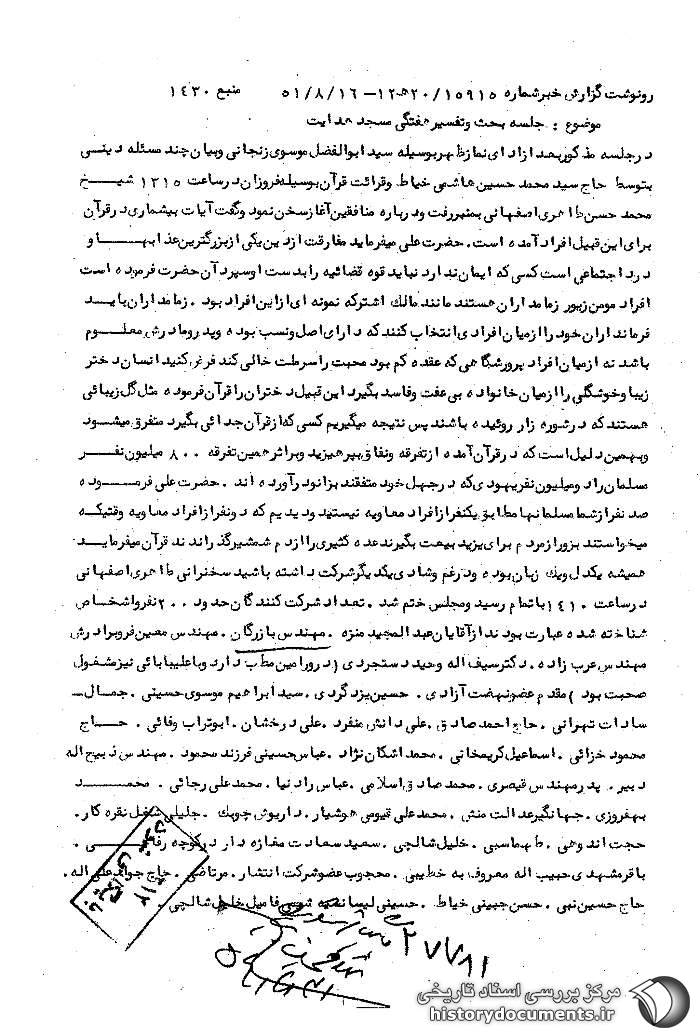 رونوشت گزارش خبرشماره ۱۵۹۱۵/ ۲۰ﻫ۱۲ – ۵۱/۸/۱۶ منبع ۱۴۳۰
موضوع : جلسه بحث وتفسیر هفتگی مسجد هدایت
در جلسه مذکور بعد از ادای نماز ظهر بوسیله سید ابوالفضل موسوی زنجانی وبیان چند مسئله دینی
بتوسط حاج سید محمد حسین هاشمی خیاط وقرائت قرآن بوسیله فروزان در ساعت ۱۳۱۵ شیخ
محمد حسن طاهری اصفهانی بمنبر رفت ودرباره منافقین آغاز سخن نمود وگفت آیات بیشماری در قرآن
برای این قبیل افراد آمده است . حضرت علی میفرماید مفارقت از دین یکی از بزرگترین عذابها و
درد اجتماعی است کسی که ایمان ندارد نباید قوه قضائیه را بدست او سپرد آن حضرت فرموده است
افراد مومن زبور زمامداران هستند مانند مالک اشتر که نمونه ای از این افراد بود . زمامداران باید
فرمانداران خود را از میان افرادی انتخاب کنند که دارای اصل ونسب بوده وپدر ومادرش معلوم
باشد نه از میان افراد پرورشگاهی که عقده کم بود محبت را سر ملت خالی کند فرض کنید انسان دختر
زیبا وخوشگلی را از میان خانواده بی عفت وفاسد بگیرد این قبیل دختران را قرآن فرموده مثل گل زیبائی
هستند که در شوره زار روئیده باشند پس نتیجه میگیریم کسی که از قرآن جدائی بگیرد متفرق میشود
وبهمین دلیل است که در قرآن آمده از تفرقه ونفاق بپرهیزید وبر اثر همین تفرقه ۸۰۰ میلیون نفر
مسلمان را دو میلیون نفر یهودی که در جهل خود متفقند بزانو درآورده اند . حضرت علی فرموده
صد نفر از شما مسلمانها مطابق یکنفر از افراد معاویه نیستید ودیدیم که دو نفر از افراد معاویه وقتیکه
میخواستند بزور از مردم برای یزید بیعت بگیرند عده کثیری را از دم شمشیر گذراندند قرآن میفرماید
همیشه یکدل ویک زبان بوده ودر غم وشادی یکدیگر شرکت داشته باشید سخنرانی طاهری اصفهانی
در ساعت ۱۴۱۰ باتمام رسید ومجلس ختم شد . تعداد شرکت کنندگان حدود ۲۰۰ نفر واشخاص
شناخته شده عبارت بودند از آقایان عبدالمجید منزه . مهندس بازرگان . مهندس معین فر وبرادرش
مهندس عرب زاده . دکتر سیف اله وحید دستجردی ( در ورامین مطب دارد وبا علیبابائی نیز مشغول
صحبت بود ) مقدم عضو نهضت آزادی . حسین یزدگردی . سید ابراهیم موسوی حسینی . جمال
سادات تهرانی . حاج احمد صادق . علی دانش منفرد . علی درخشان . ابوتراب وفائی . حاج
محمود خزائی . اسماعیل کریمخانی . محمد اشکان نژاد . عباس حسینی فرزند محمود . مهندس ذبیح اله
دبیر . پدر مهندس قیصری . محمد صادق اسلامی . عباس رادنیا . محمد علی رجائی . محمد
بهفروزی . جهانگیر عدالت منش . محمد علی قیومی هوشیار . داریوش چوبک . جلیلی شغل نقره کار .
حجت اندوهی . طهماسبی . خلیل شالچی . سعید سعادت مغازه دار در کوچه
باقر مشهدی حبیب اله معروف به خطیبی . محجوب عضو شرکت انتشار . مرتاضی . حاج جواد علی اله .
حاج حسین نبی . حسن جبینی خیاط . حسینی لیسانسه فامیل خلیل شالچی .
۲۷۷۸۱
مرکز بررسی اسناد تاریخی
historydocuments.ir